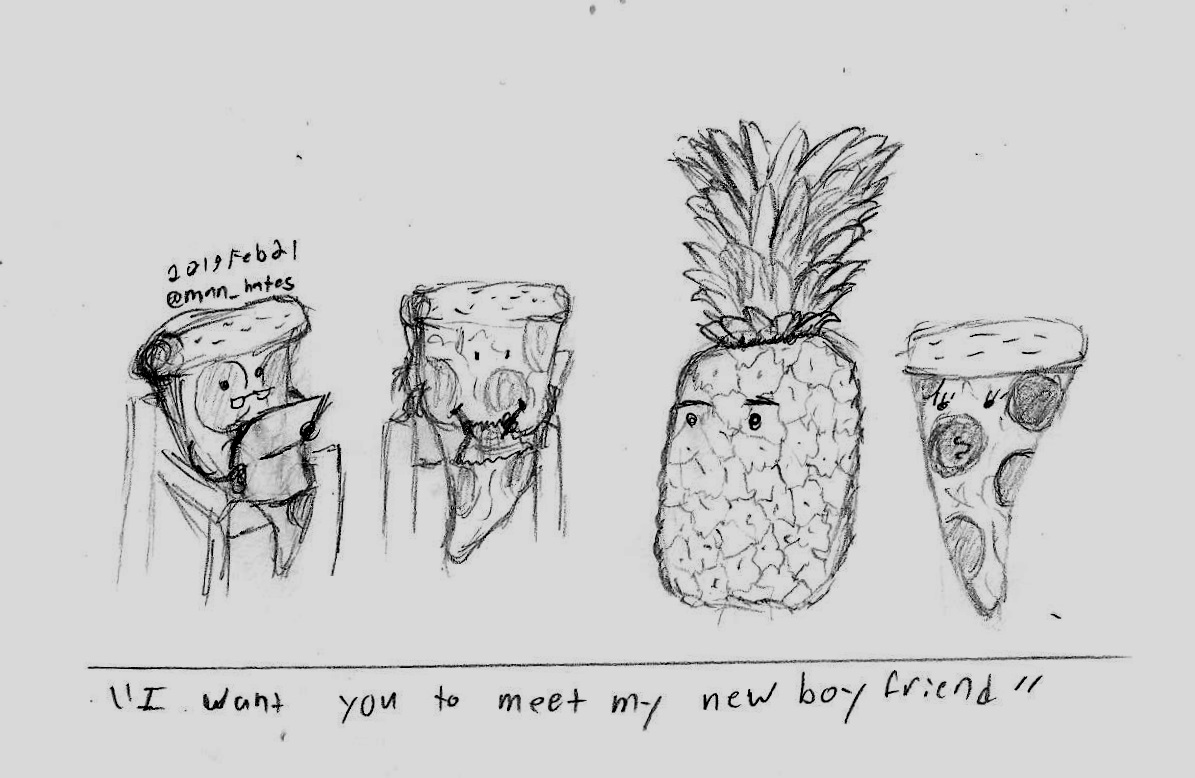 2019Feb21
@man_hates
"I want you to meet my new boyfriend"